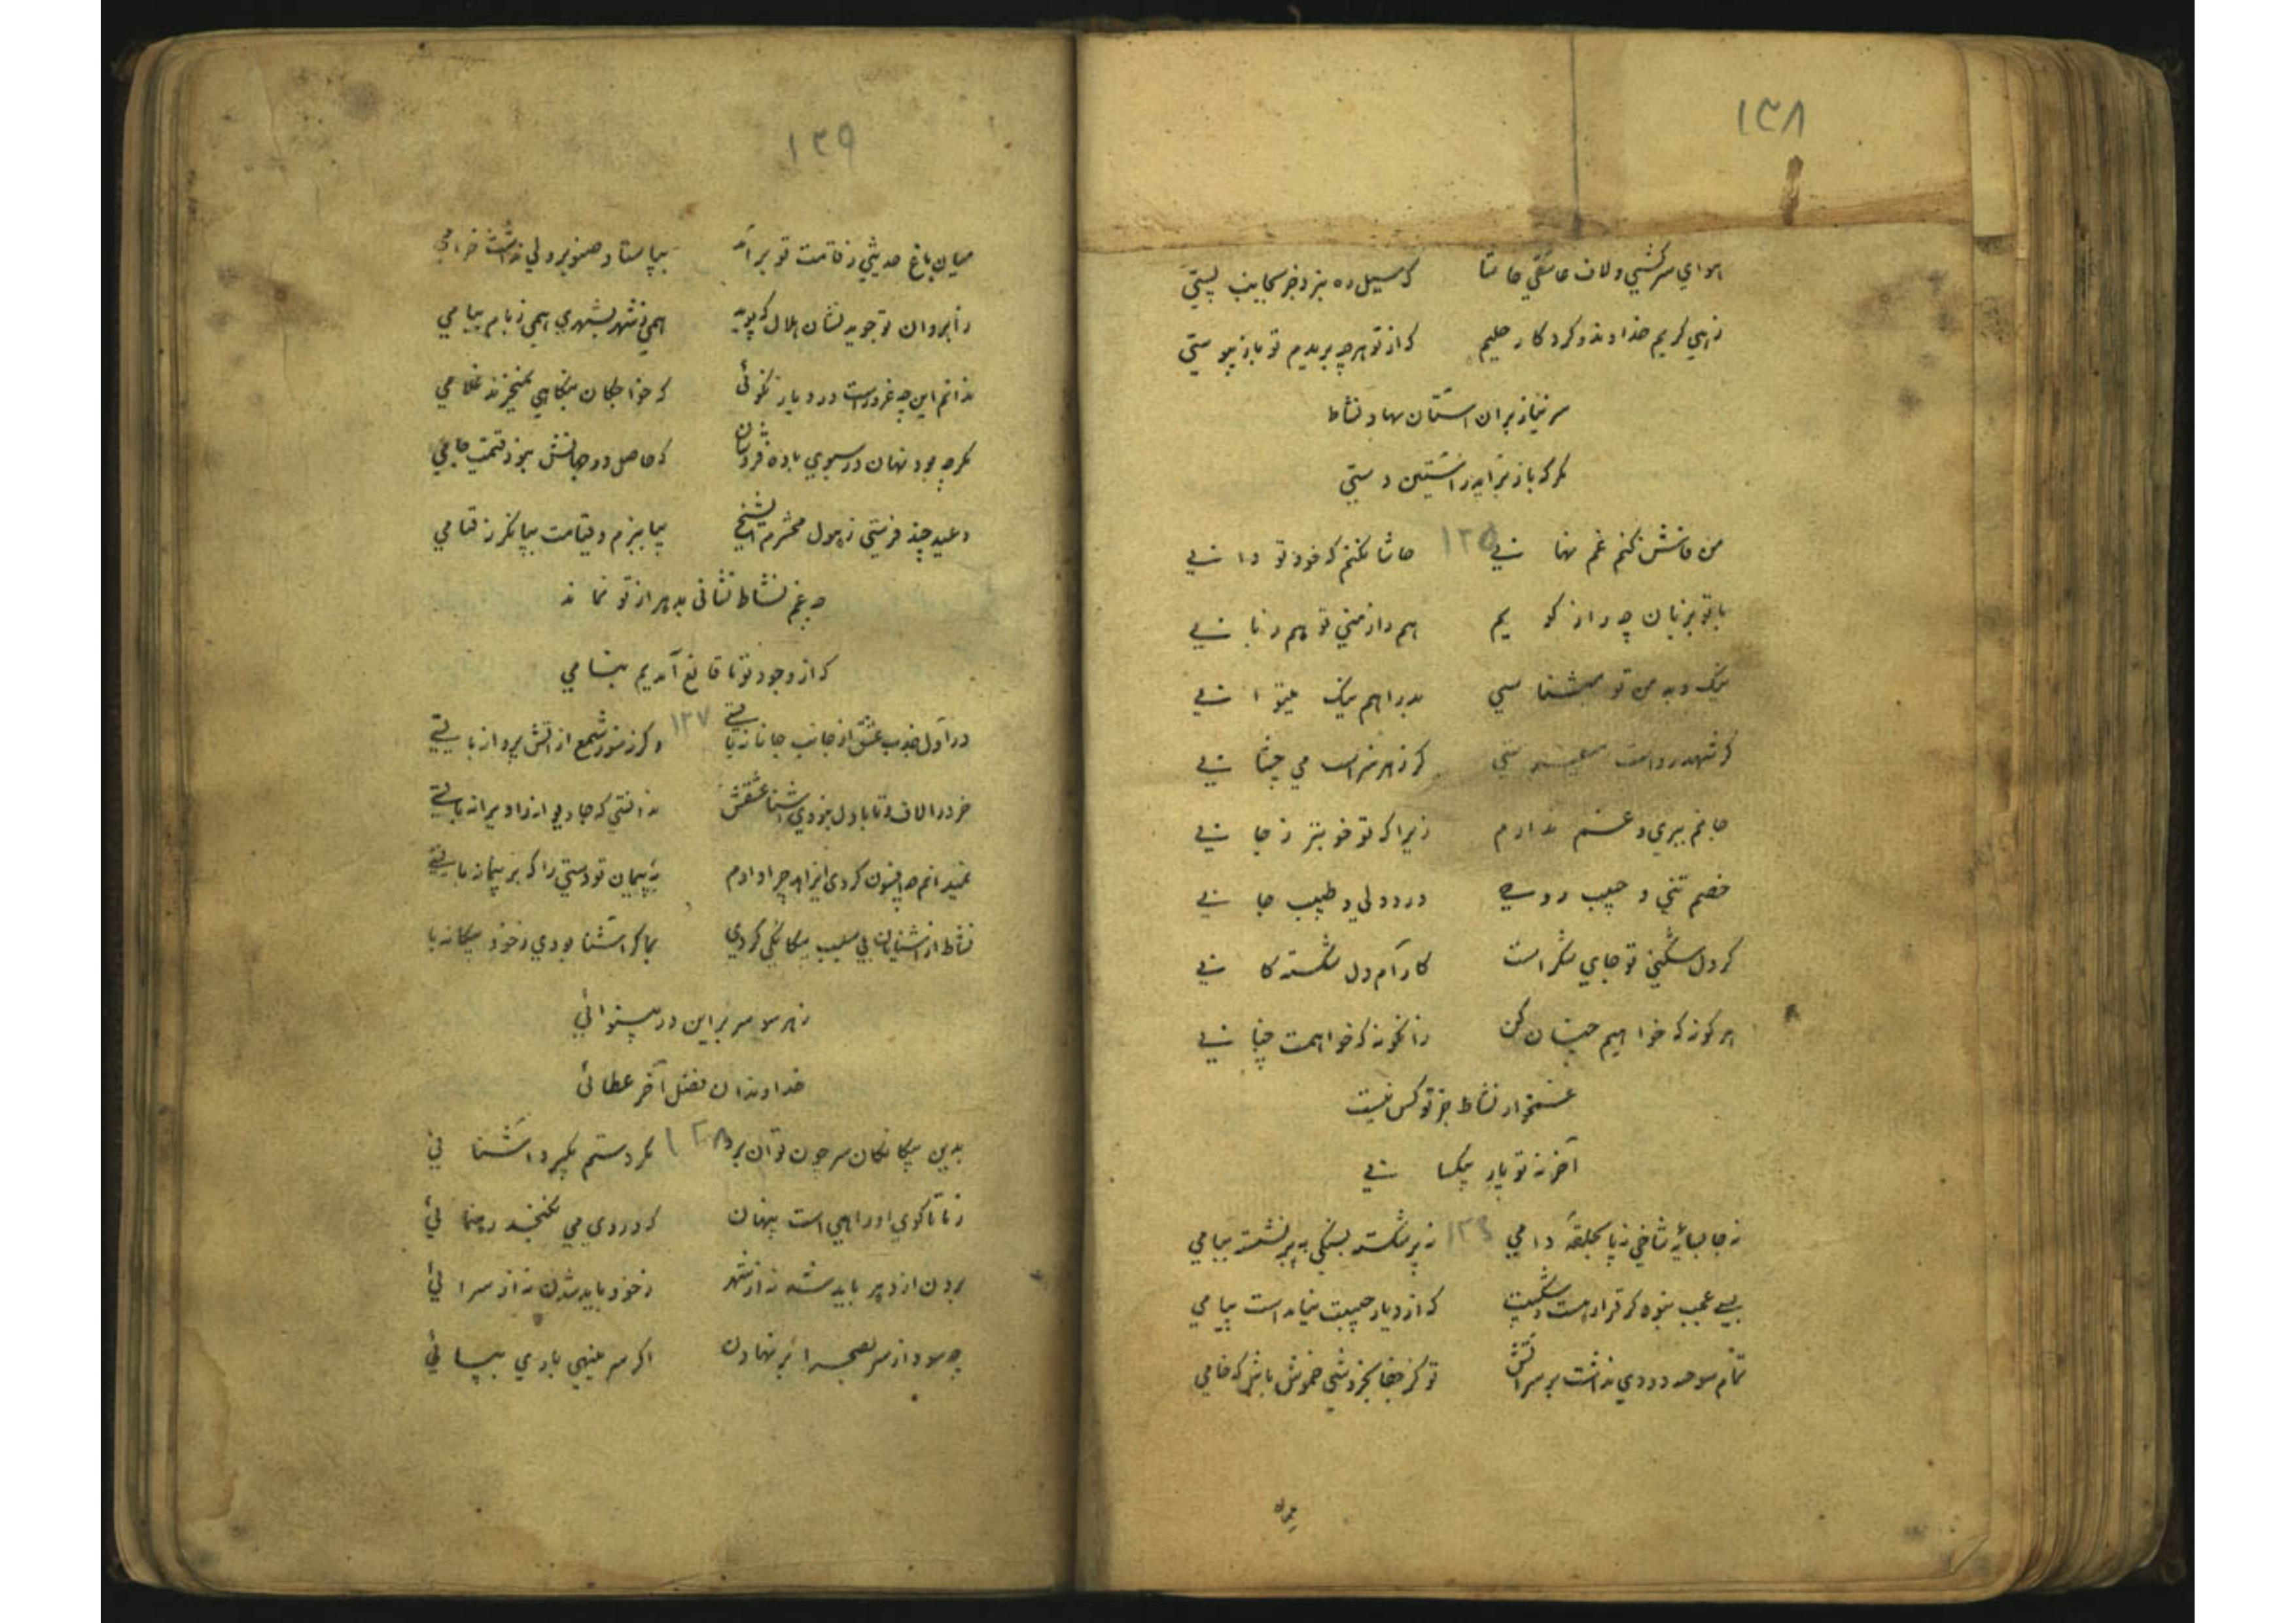 ۱۳۸
هوای سرکشی و لاف عاشقی حاشا که سیل ره نبرد جز بجانب پستی
زهی کریم خداوند و کردکار حلیم که از تو هرچه بریدم تو باز پیوستی
سر نیاز بران استان نهاد نشاط
مکر که باز براید ز استین دستی
من فاش نکنم غم نهانی ۱۳۵ حاشا نکنم که خود تو دانی
با تو بزبان چه راز کویم هم راز منی تو هم زبانی
نیک و بد من تو میشناسی بد را هم نیک میتوانی
کر شهد رواست کر زهر سزاست می چشانی
جانم ببری و غم ندارم زیرا که تو خوبتر ز جانی
خصم تنی و حبیب روحی درد دلی و طبیب جانی
کر دل شکنی تو جای شکر است کارام دل شکسته کانی
هر کونه که خواهیم چنان کن زانکونه که خواهمت چنانی
غمخوار نشاط جز تو کس نیست
آخر نه تو یار بیکسانی
نه جا بسایه شاخی نه پا بحلقه دامی ۱۳۶ نه پر شکسته بسنکی نه پر نشسته ببامی
بسی عجب نبود کر قرار هست و شکیبت که از دیار حبیبت نیامد است پیامی
تمام سوخته دودی نداشت بر سر آتش تو کز جفا بخروشی خموش باش که خامی
میان
۱۳۹
میان باغ حدیثی ز قامت تو برآمد بپا ستاد صنوبر ولی نداشت خرامی
ز ابروان تو جوید نشان هلال که پوید همی ز شهر بشهری همی ز بام ببامی
ندانم این چه غرور است در دیار نکوئی که خواجکان بنکاهی نمیخرند غلامی
مکر چه بود نهان در سبوی باده فروشان که حاصل دو جهانش نبود قیمت جامی
وعید چند فرستی ز هول محشرم ای شیخ بیا ببزم و قیامت ببا نکر ز قیامی
چه غم نشاط نشانی بدهر از تو نماند
که از وجود تو ما قانع آمدیم بنامی
در اول جذب عشق از جانب جانانه بایستی ۱۳۷ و کرنه سوز شمع از آتش پروانه بایستی
خرد را لاف با دل بودی اشنا عشقش ندانستی که جا دیوانه را ویرانه بایستی
نمیدانم چه افسون کردی ای زاهد چرا دادم به پیمان تو دستی را که بر پیمانه بایستی
نشاط از اشنایان بی سبب بیکانکی کردی بما کر اشنا بودی ز خود بیکانه با
ز هر سو سر برین در بینوائی
خداوندان فضل آخر عطائی
بدین بیکانکان سر چون توان برد ۱۳۸ مکر دستم بکیرد اشنائی
ز ما تا کوی او راهی است پنهان که در وی می نکنجد رهنمائی
برون از دهر باید شد نه از شهر ز خود باید شدن نه از سرائی
چه سود از سر بصحرا بر نهادن اکر سر مینهی باری بپائی